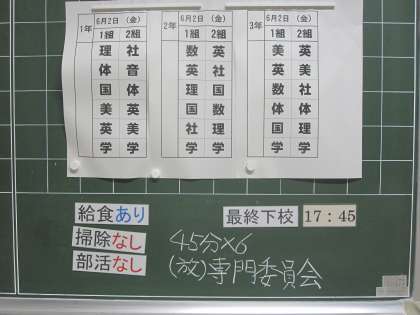 1年 6月2日 (金) 2年 6月2日 (金) 3年 6月2日 (金)
1組 2組 1組 2組 1組 2組
理 社 数 社 美 英
体 音 英 英 英 美
国 体 理 国 数 社
美 英 国 数 体 体
英 美 社 理 国 理
学 学 学 学 学 学
給食あり 最終下校 17:45
掃除なし 45分×6
部活なし (放)専門委員会